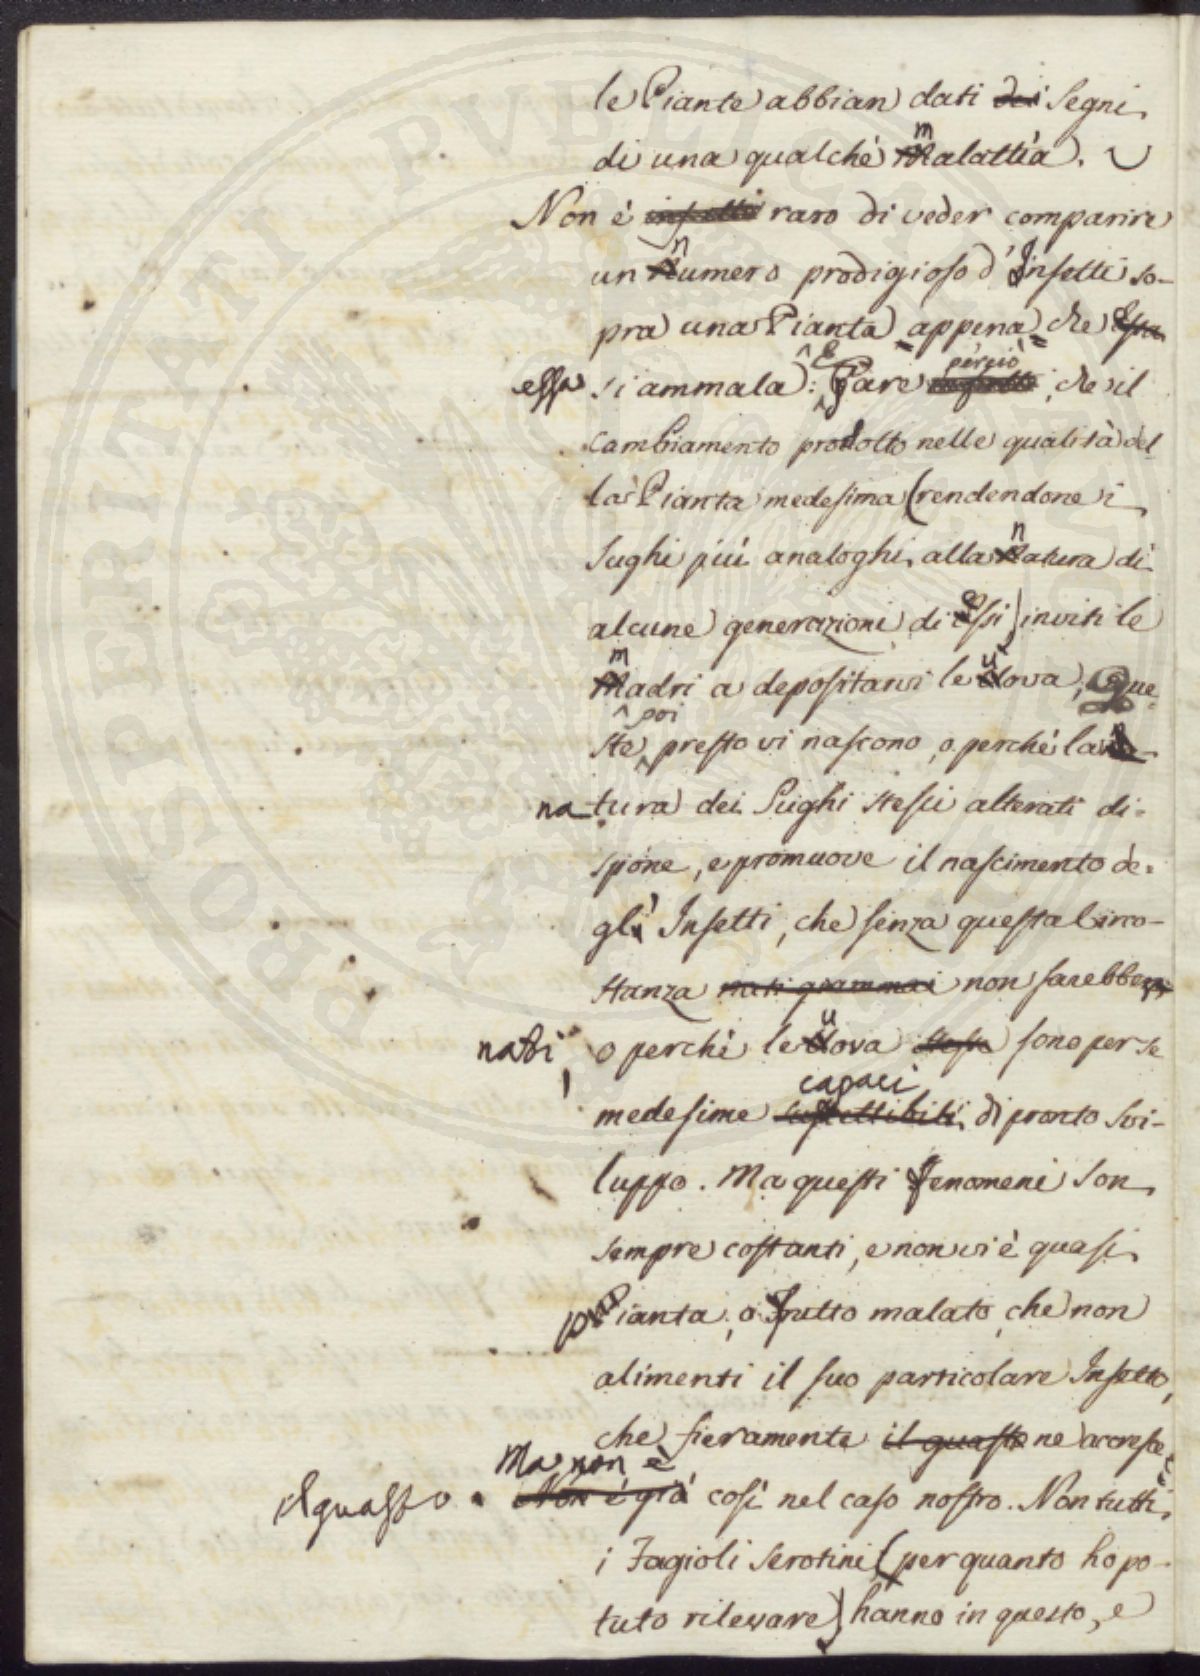 le Piante abbian dati dei segni
di una qualche malattia.
Non è infatti raro di veder comparire
un numero prodigioso d'Insetti so-
pra una Pianta appena che Essa
essa si ammala: E pare perciò, che il
cambiamento prodotto nelle qualità del-
la Pianta medesima (rendendone i
sughi più analoghi alla natura di
alcune generazioni di essi) inviti le
madri a depositarvi le uova; Que-
ste poi presto vi nascono, o perchè la
na-tura dei Sughi stessi alterati di-
spone, e promuove il nascimento de-
gl' Insetti, che senza questa Circo-
stanza nati giammai non sarebbero
nati, o perchè le uova stesse sono per se
medesime suscettibili capaci di pronto svi-
luppo. Ma questi fenomeni son
sempre costanti, e non vi è quasi
pianta, o frutto malato, che non
alimenti il suo particolare Insetto,
che fieramente il guasto ne accresce
il guasto. Non è già Ma non è così nel caso nostro. Non tutti
i Fagioli serotini (per quanto ho po-
tuto rilevare) hanno in questo, e
PROSPERITATI PVBLICAE